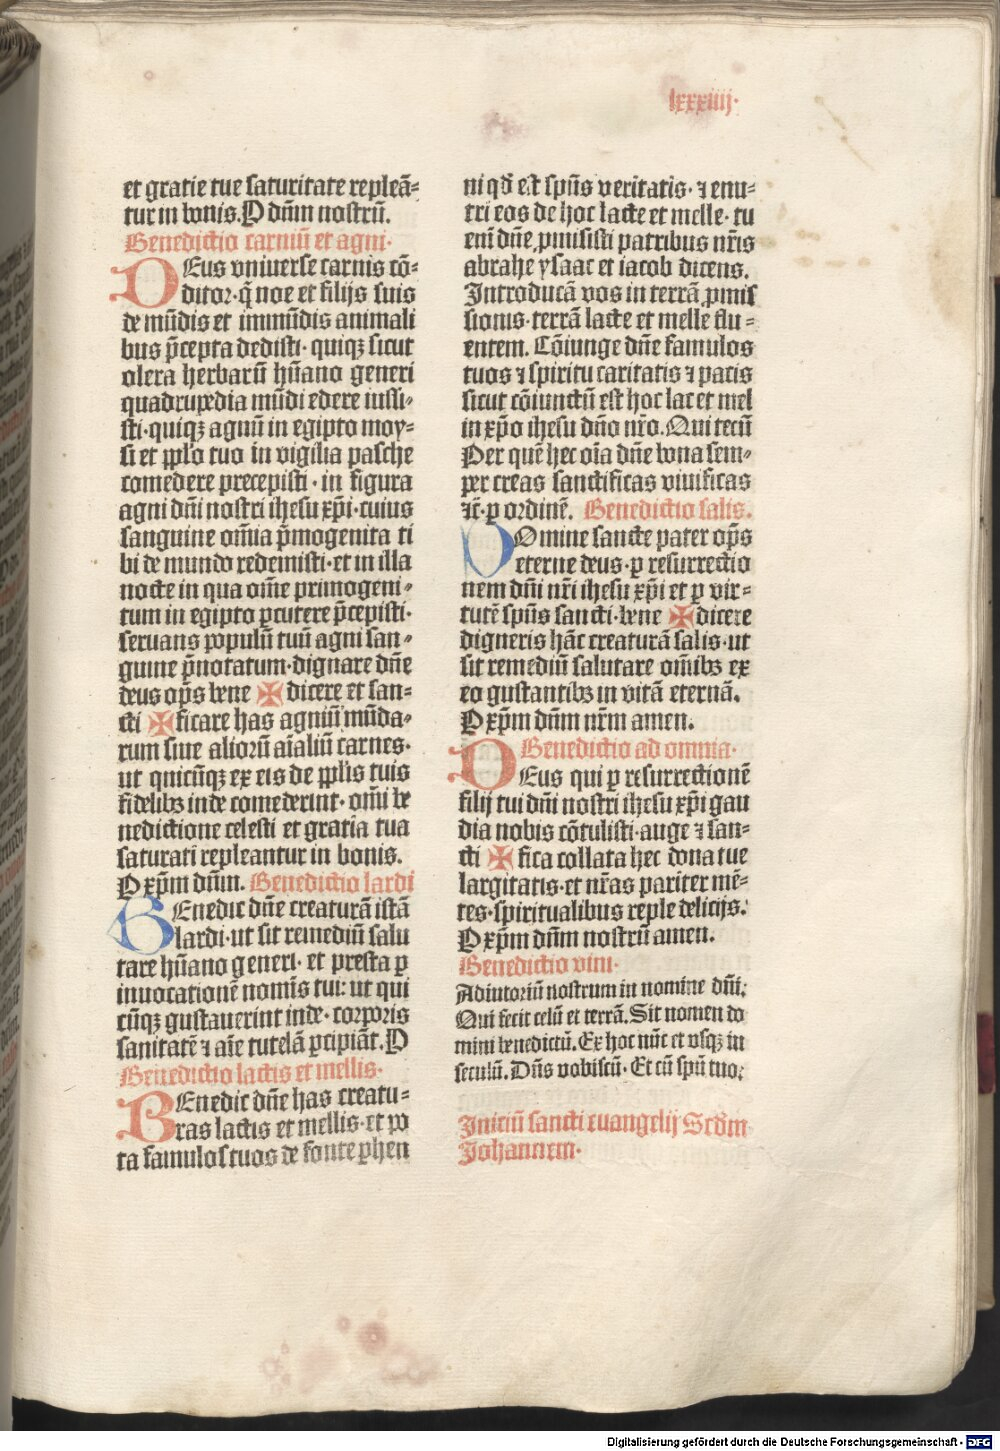 lxxxiiij·
et gratie tue saturitate repleā-
tur in bonis. P dn̄m nostrū.
Benedictio carniū et agni·
DEus vniuerse carnis cō-
ditor· q̄ noe et filijs suis
de mūdis et immūdis animali
bus p̄cepta dedisti· quiqꝫ sicut
olera herbarū hūano generi
quadrupedia mūdi edere iussi-
sti· quiqꝫ agnū in egipto moy-
si et pp̄lo tuo in vigilia pasche
comedere precepisti· in figura
agni dn̄i nostri ihesu xp̄i· cuius
sanguine om̄ia p̄mogenita ti
bi de mundo redemisti· et in illa
nocte in qua om̄e primogeni-
tum in egipto ꝑcutere p̄cepisti·
seruans populū tuū agni san-
guine p̄notatum· dignare dn̄e
deus op̄s bene ✠ dicere et san-
cti ✠ ficare has agniū mūda-
rum siue aliorū aīaliū carnes·
ut quicūqꝫ ex eis de pp̄lis tuis
fidelibꝫ inde comederint· om̄i be
nedictione celesti et gratia tua
saturati repleantur in bonis.
P xp̄m dn̄m. Benedictio lardi
BEnedic dn̄e creaturā istā
lardi· ut sit remediū salu
tare hūano generi· et presta ꝑ
inuocationē nominis tui: ut qui
cūqꝫ gustauerint inde· corporis
sanitatē ⁊ aīe tutelā ꝑcipiāt. P
Benedictio lactis et mellis·
BEnedic dn̄e has creatu-
ras lactis et mellis· et po
ta famulos tuos de fonte ꝑhen
ni qd̄ est spūs veritatis· ⁊ enu-
tri eos de hoc lacte et melle· tu
eni dn̄e ꝓmisisti patribus nr̄is
abrahe ysaac et iacob dicens.
Introducā vos in terrā ꝓmis
sionis· terrā lacte et melle flu-
entem. Cōiunge dn̄e famulos
tuos ⁊ spiritu caritatis ⁊ pacis
sicut cōiunctū est hoc lac et mel
in xp̄o ihesu dn̄o nr̄o. Qui tecū
Per quē hec oīa dn̄e bona sem-
per creas sanctificas viuificas
⁊c̄· ꝑ ordinē. Benedictio salis.
DOmine sancte pater op̄s
eterne deus· ꝑ resurrectio
nem dn̄i nr̄i ihesu xp̄i et ꝑ vir-
tutē spūs sancti· bene ✠ dicere
digneris hāc creaturā salis· ut
sit remediū salutare om̄ibꝫ ex
eo gustantibꝫ in vitā eternā.
P xp̄m dn̄m nr̄m amen.
Benedictio ad omnia·
DEus qui ꝑ resurrectionē
filij tui dn̄i nostri ihesu xp̄i gau
dia nobis cōtulisti· auge ⁊ san-
cti ✠ fica collata hec dona tue
largitatis· et nr̄as pariter mē-
tes· spiritualibus reple delicijs.
P xp̄m dn̄m nostrū amen.
Benedictio vini·
Adiutoriū nostrum in nomine dn̄i:
Qui fecit celū et terrā. Sit nomen do
mini benedictū. Ex hoc nūc et vsqꝫ in
seculū. Dn̄s vobiscū· Et cū spū tuo:
Iniciū sancti euangelij Scd̄m
Johannem·
Digitalisierung gefördert durch die Deutsche Forschungsgemeinschaft - DFG